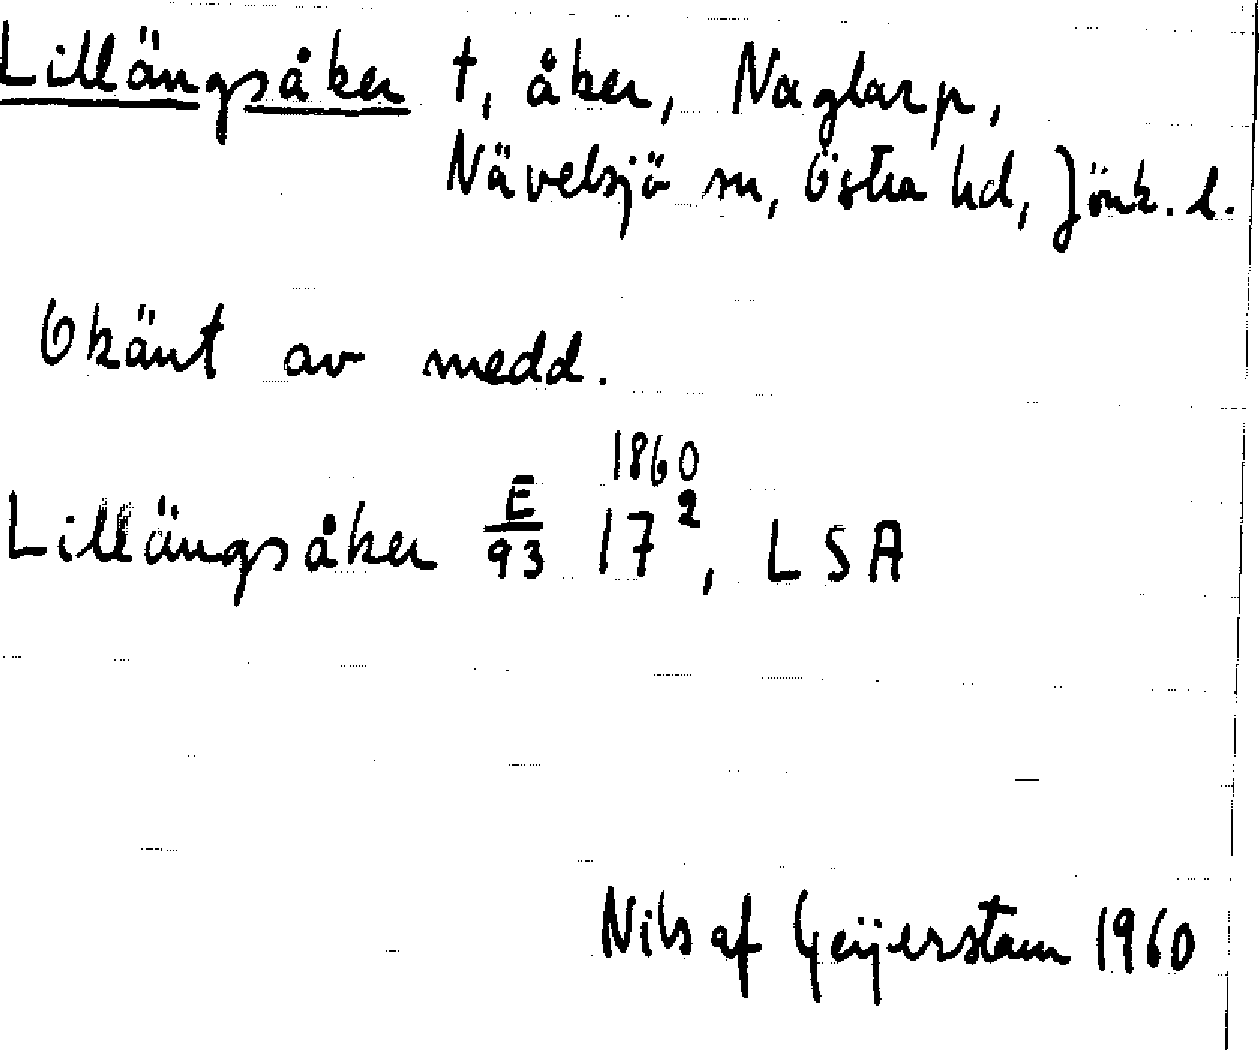 Lillängsåker †, åker, Naglarp,
Nävelsjö sn, Östra hd, Jönk. l.
Okänt av medd.
Lillängsåker E/93 17², 1860 LSA
Nils af Geijerstam 1960